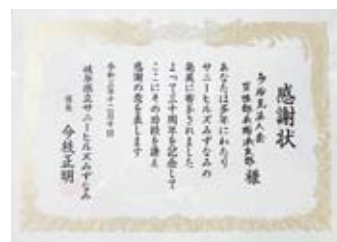 感謝状
多治見法人会
様
あなたは多年にわたり
サニーヒルズみずなみの
発展に寄与されました
よって三十周年を記念して
ここにその功績を讃え
感謝の意を表します
令和三年十二月十日
岐阜県立サニーヒルズみずなみ
今枝正明